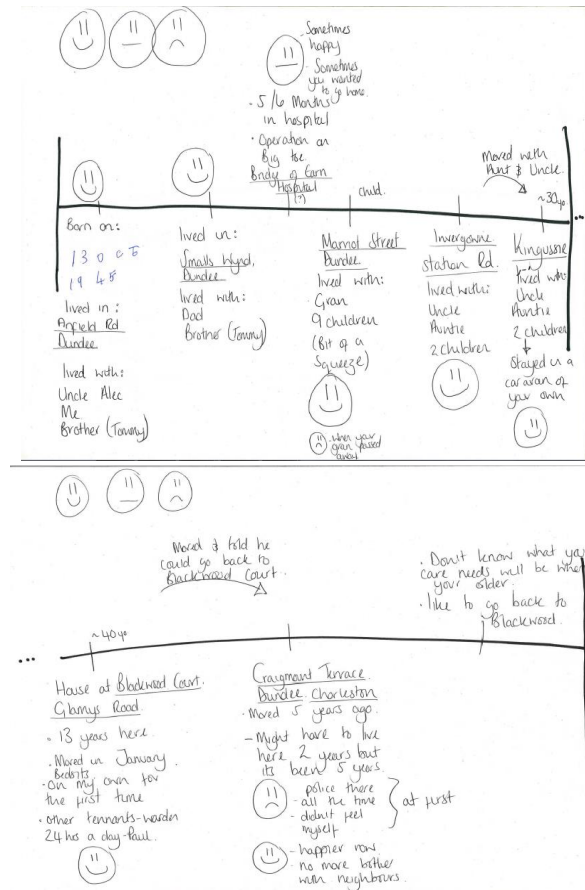 - Sometimes
happy
- Sometimes
you wanted
to go home.
• 5/6 Months
in hospital
• Operation on
Big toe
Bridge of Earn
Hospital
(?)
child.
Moved with
Aunt & Uncle.
~30yo
...
Born on:
13 Oct
1945
lived in:
Anfield Rd
Dundee
lived with:
Uncle Alec
Me
Brother (Tommy)
lived in:
Smalls Wynd,
Dundee
lived with:
Dad
Brother (Tommy)
Street
Dundee
lived with:
Gran
9 children
(Bit of a
Squeeze)
when your
gran passed
away.
Invergowrie
Station Rd.
lived with:
Uncle
Auntie
2 children
Kingussie
lived with:
Uncle
Auntie
2 children
Stayed in a
caravan of
your own
Moved & told he
could go back to
Blackwood Court.
• Don't know what your
care needs will be when
your older.
• like to go back to
Blackwood.
...
~40yo
House at Blackwood Court.
Glamys Road.
• 13 years here.
• Moved in January
Bedsits
• On my own for
the first time
• other tennants-warden
24 hrs a day-Paul.
Craigmount Terrace.
Dundee. Charleston
• Moved 5 years ago.
- Might have to live
here 2 years but
its been 5 years.
- police there
- all the time
- didn't feel
myself
at first
- happier now.
- no more bother
with neighbours.